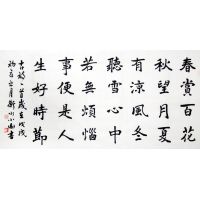 春賞百花
秋望月夏
有涼風冬
聽雪心中
若無煩惱
事便是人
生好時節
古詩一首歲在戊戌
月
書